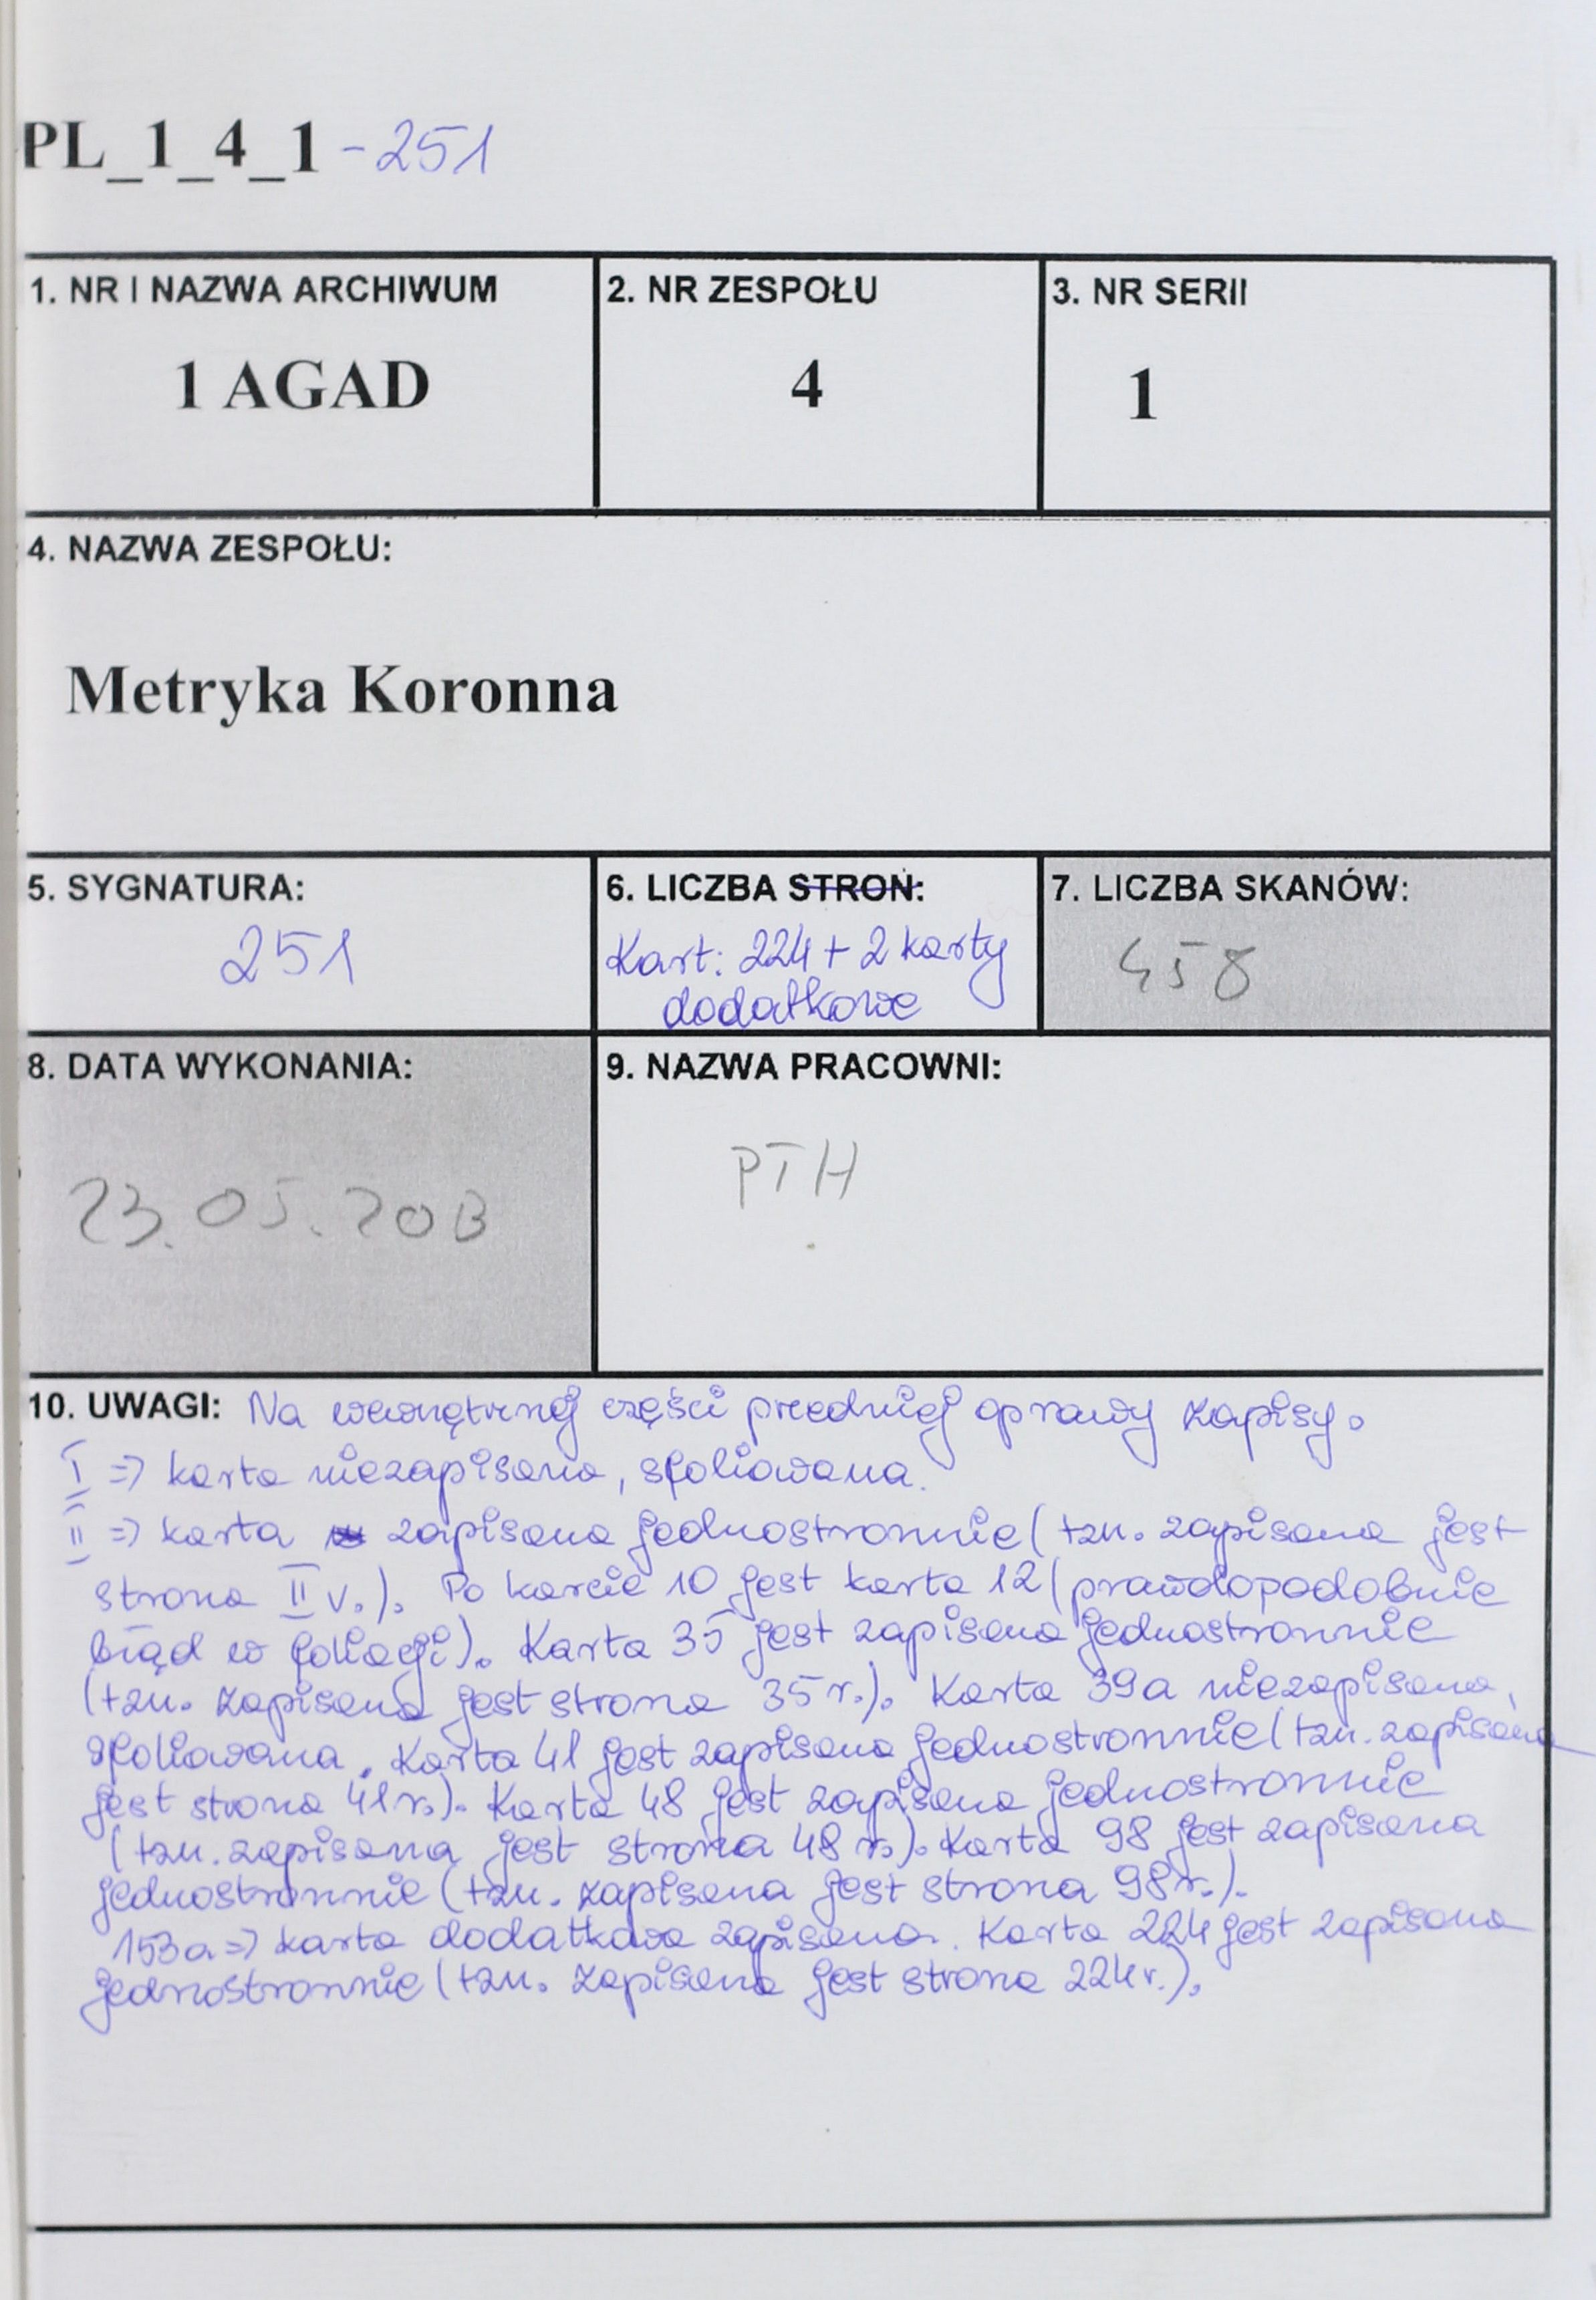 PL_1_4_1 - 251
1. NR I NAZWA ARCHIWUM
1 AGAD
2. NR ZESPOŁU
4
3. NR SERII
1
4. NAZWA ZESPOŁU:
Metryka Koronna
5. SYGNATURA:
251
6. LICZBA STRON:
Kart: 224 + 2 karty
dodatkowe
7. LICZBA SKANÓW:
458
8. DATA WYKONANIA:
23.05.2013
9. NAZWA PRACOWNI:
PTH
10. UWAGI: Na wewnętrznej części przedniej oprawy zapisy.
I => karta niezapisana, sfoliowana.
II => karta zapisana jednostronnie (tzn. zapisana jest
strona II v.). Po karcie 10 jest karta 12 (prawdopodobnie
błąd w foliacji). Karta 35 jest zapisana jednostronnie
(tzn. zapisana jest strona 35 r.). Karta 39a niezapisana,
sfoliowana. Karta 41 jest zapisana jednostronnie (tzn. zapisana
jest strona 41 r.). Karta 48 jest zapisana jednostronnie
(tzn. zapisana jest strona 48 r.). Karta 98 jest zapisana
jednostronnie (tzn. zapisana jest strona 98 r.).
153a => karta dodatkowa zapisana. Karta 224 jest zapisana
jednostronnie (tzn. zapisana jest strona 224 r.).